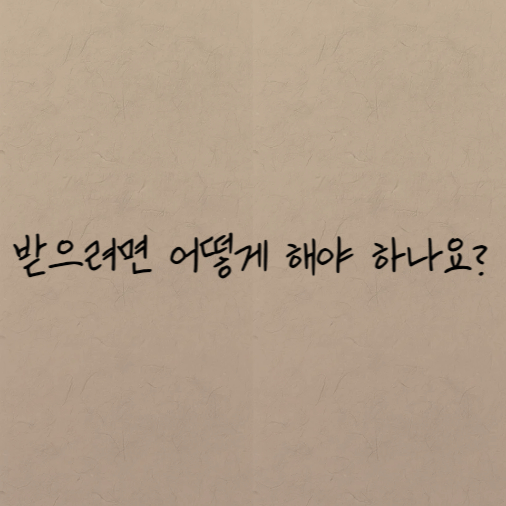 받으려면 어떻게 해야 하나요?